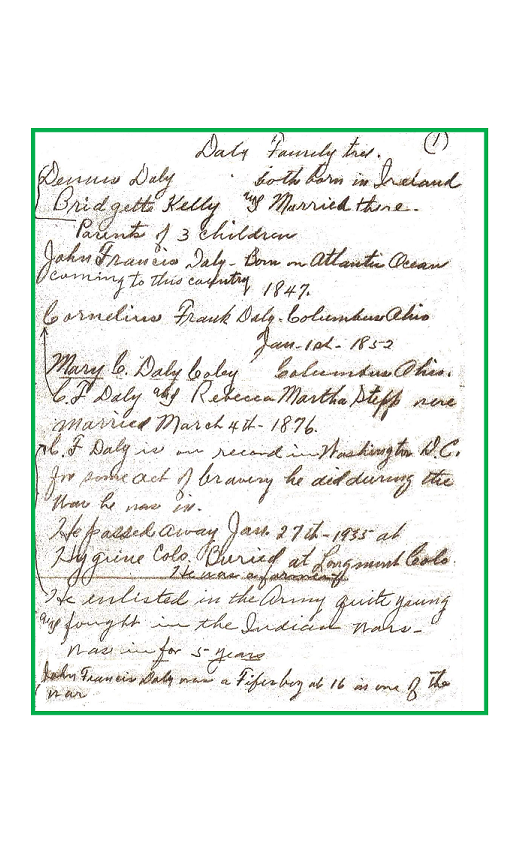 Daly Family tree. (1)
Dennis Daly both born in Ireland
Bridgette Kelly and Married there.
Parents of 3 children
John Francis Daly - Born on Atlantic Ocean
coming to this country 1847.
Cornelius Frank Daly - Columbus Ohio
Jan - 1st - 1852
Mary C. Daly Coley Columbus Ohio.
C. F Daly and Rebecca Martha Stepp were
married March 4th - 1876.
C. F Daly is on record in Washington D.C.
for some act of bravery he did during the
War he was in.
He passed away Jan. 27th - 1935 at
Hygiene Colo. Buried at Longmont Colo.
He was a
He enlisted in the Army quite young
and fought in the Indian Wars -
Was in for 5 years
John Francis Daly was a Fifer boy at 16 in one of the
War